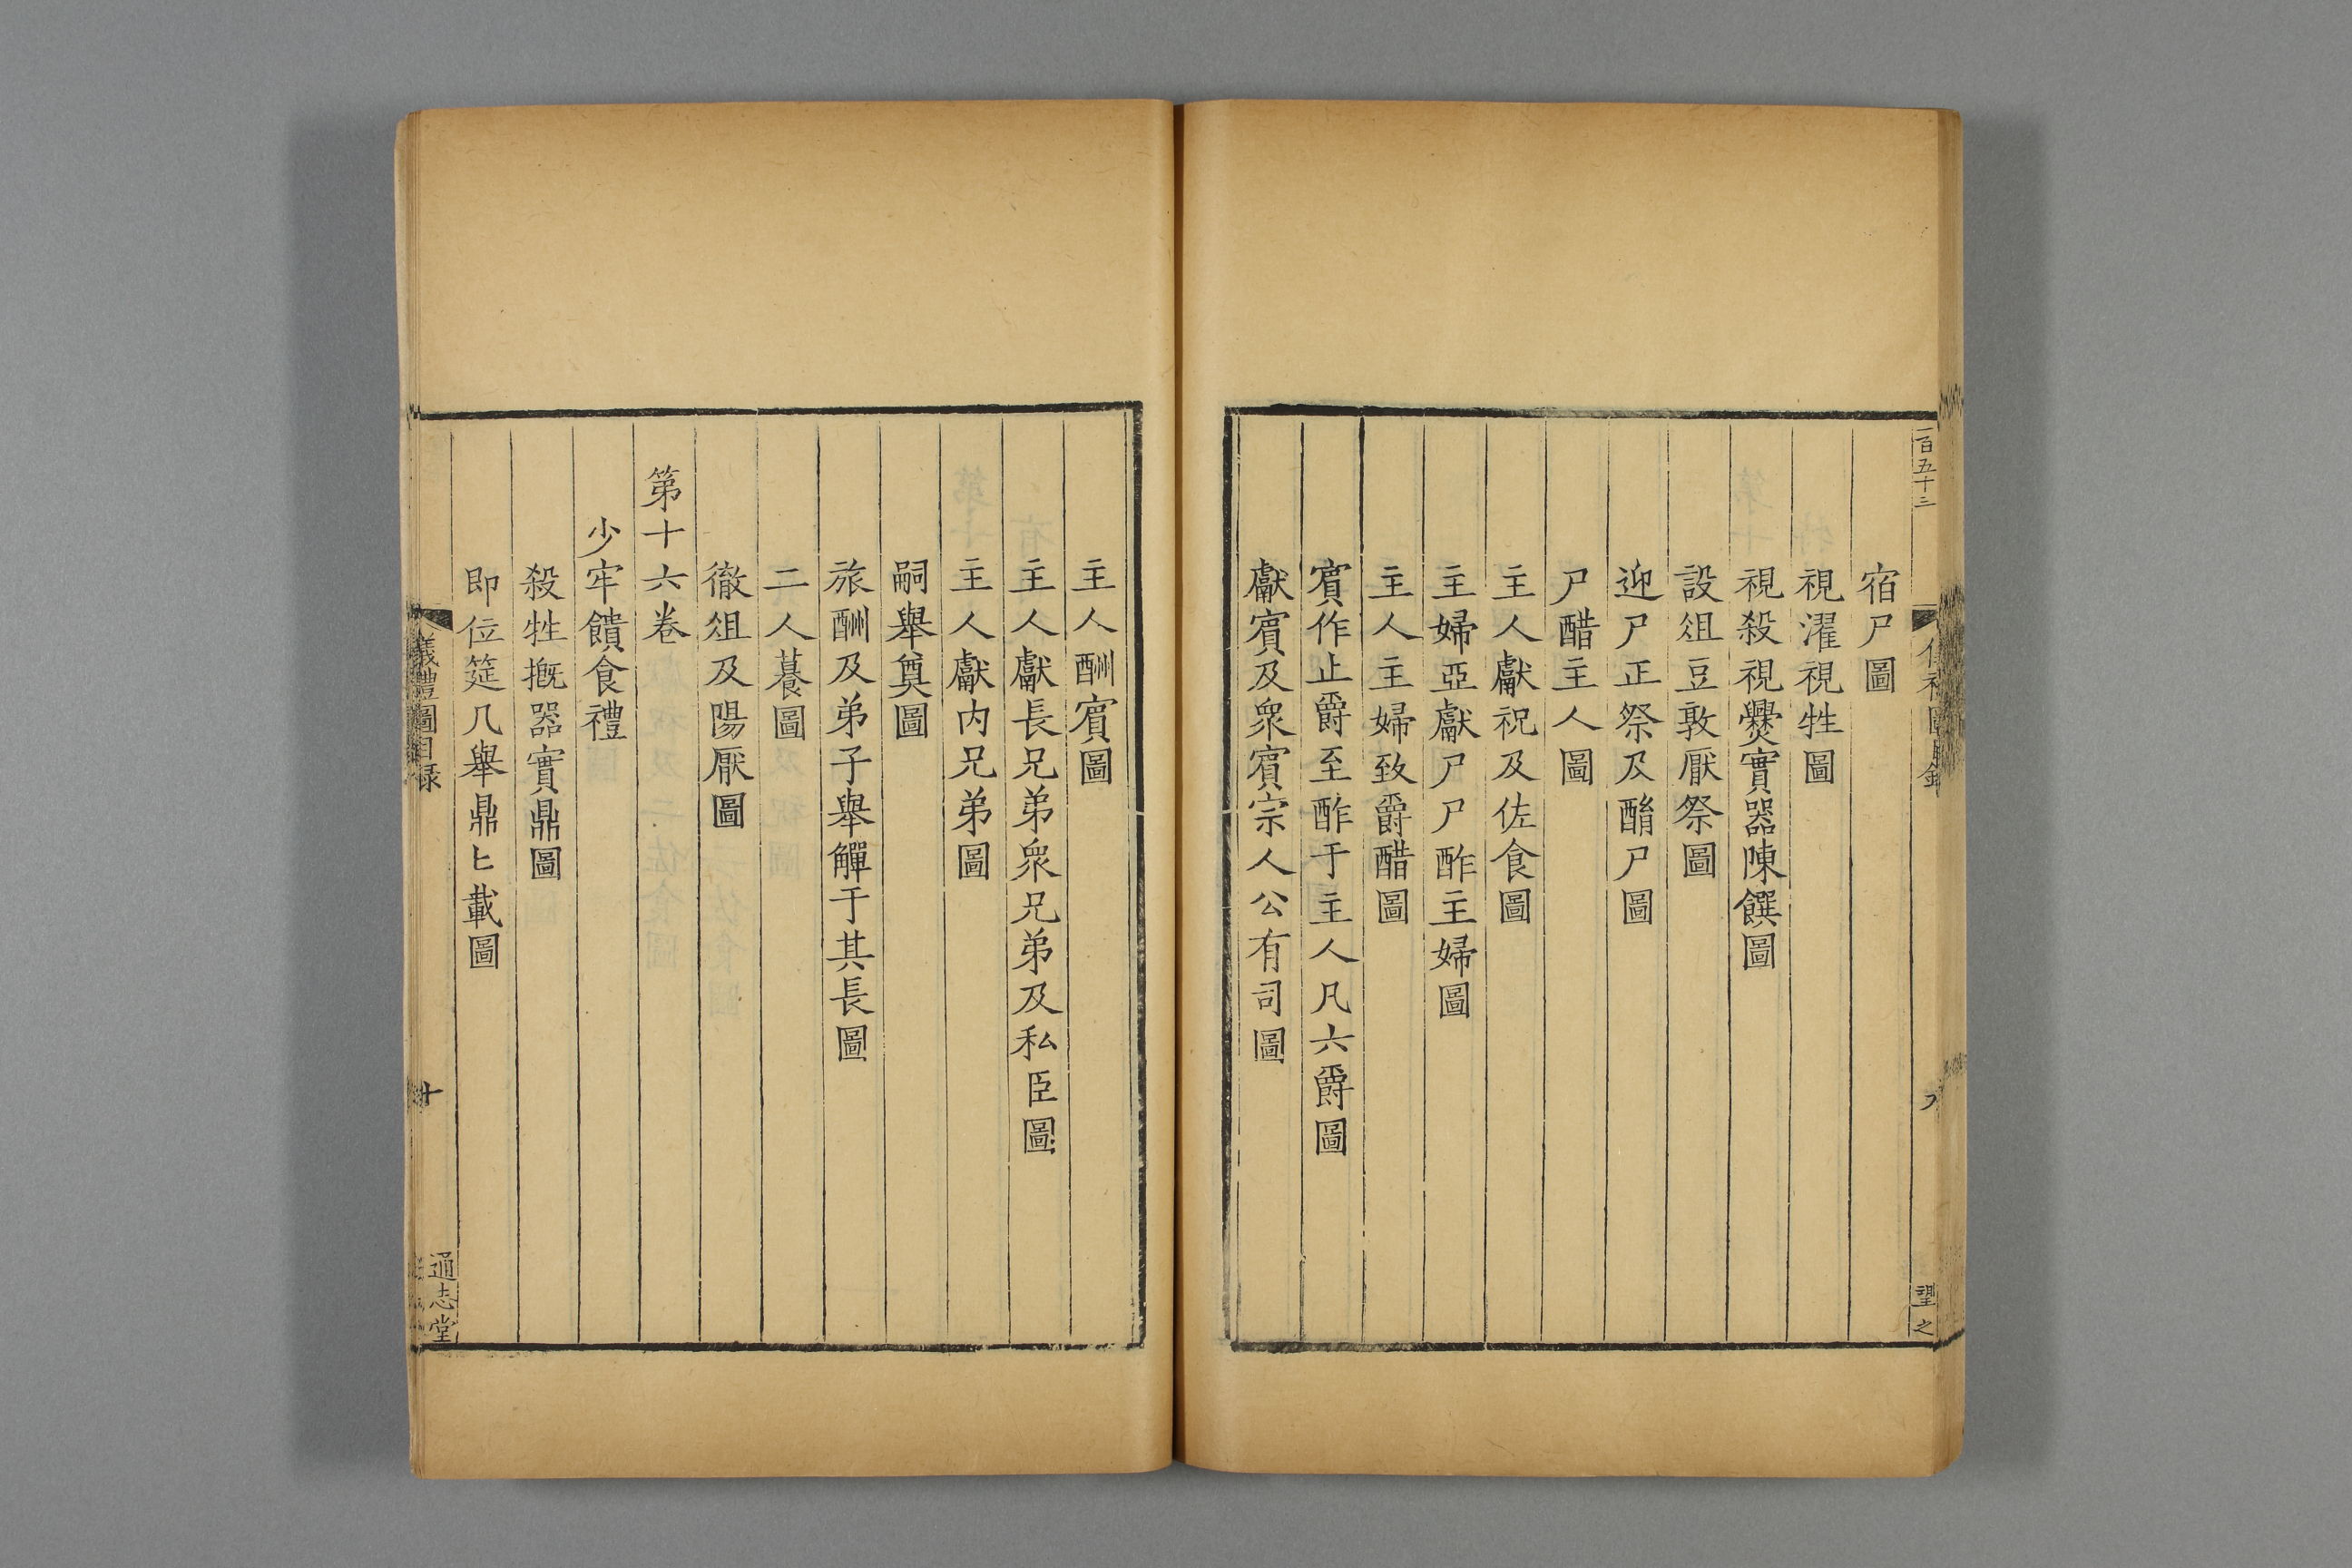 一百五十三
望之
宿尸圖
視濯視牲圖
視殺視爨實器陳饌圖
設俎豆敦厭祭圖
迎尸正祭及酳尸圖
尸醋主人圖
主人獻祝及佐食圖
主婦亞獻尸尸酢主婦圖
主人主婦致爵醋圖
賔作止爵至酢于主人凡六爵圖
獻賔及衆賔宗人公有司圖
主人酬賔圖
主人獻長兄弟衆兄弟及私臣圖
主人獻内兄弟圖
嗣舉奠圖
旅酬及弟子舉觶于其長圖
二人䭕圖
徹俎及陽厭圖
第十六卷
少牢饋食禮
殺牲摡器實鼎圖
即位筵几舉鼎匕載圖
儀禮圖目録
十
通志堂